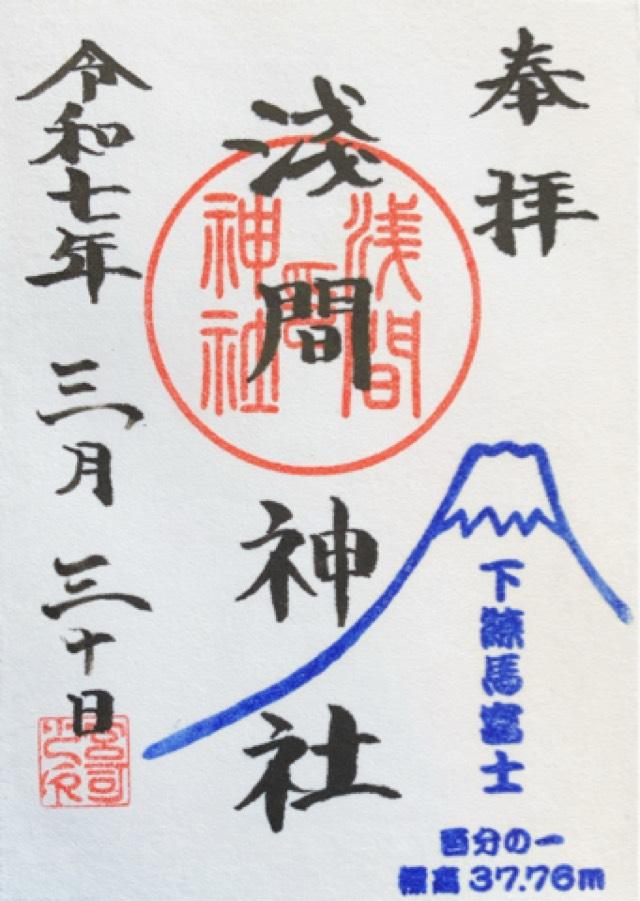 奉拝
浅間神社
浅間
神社
下練馬富士
百分の一
標高37.76m
令和七年 三月 三十日